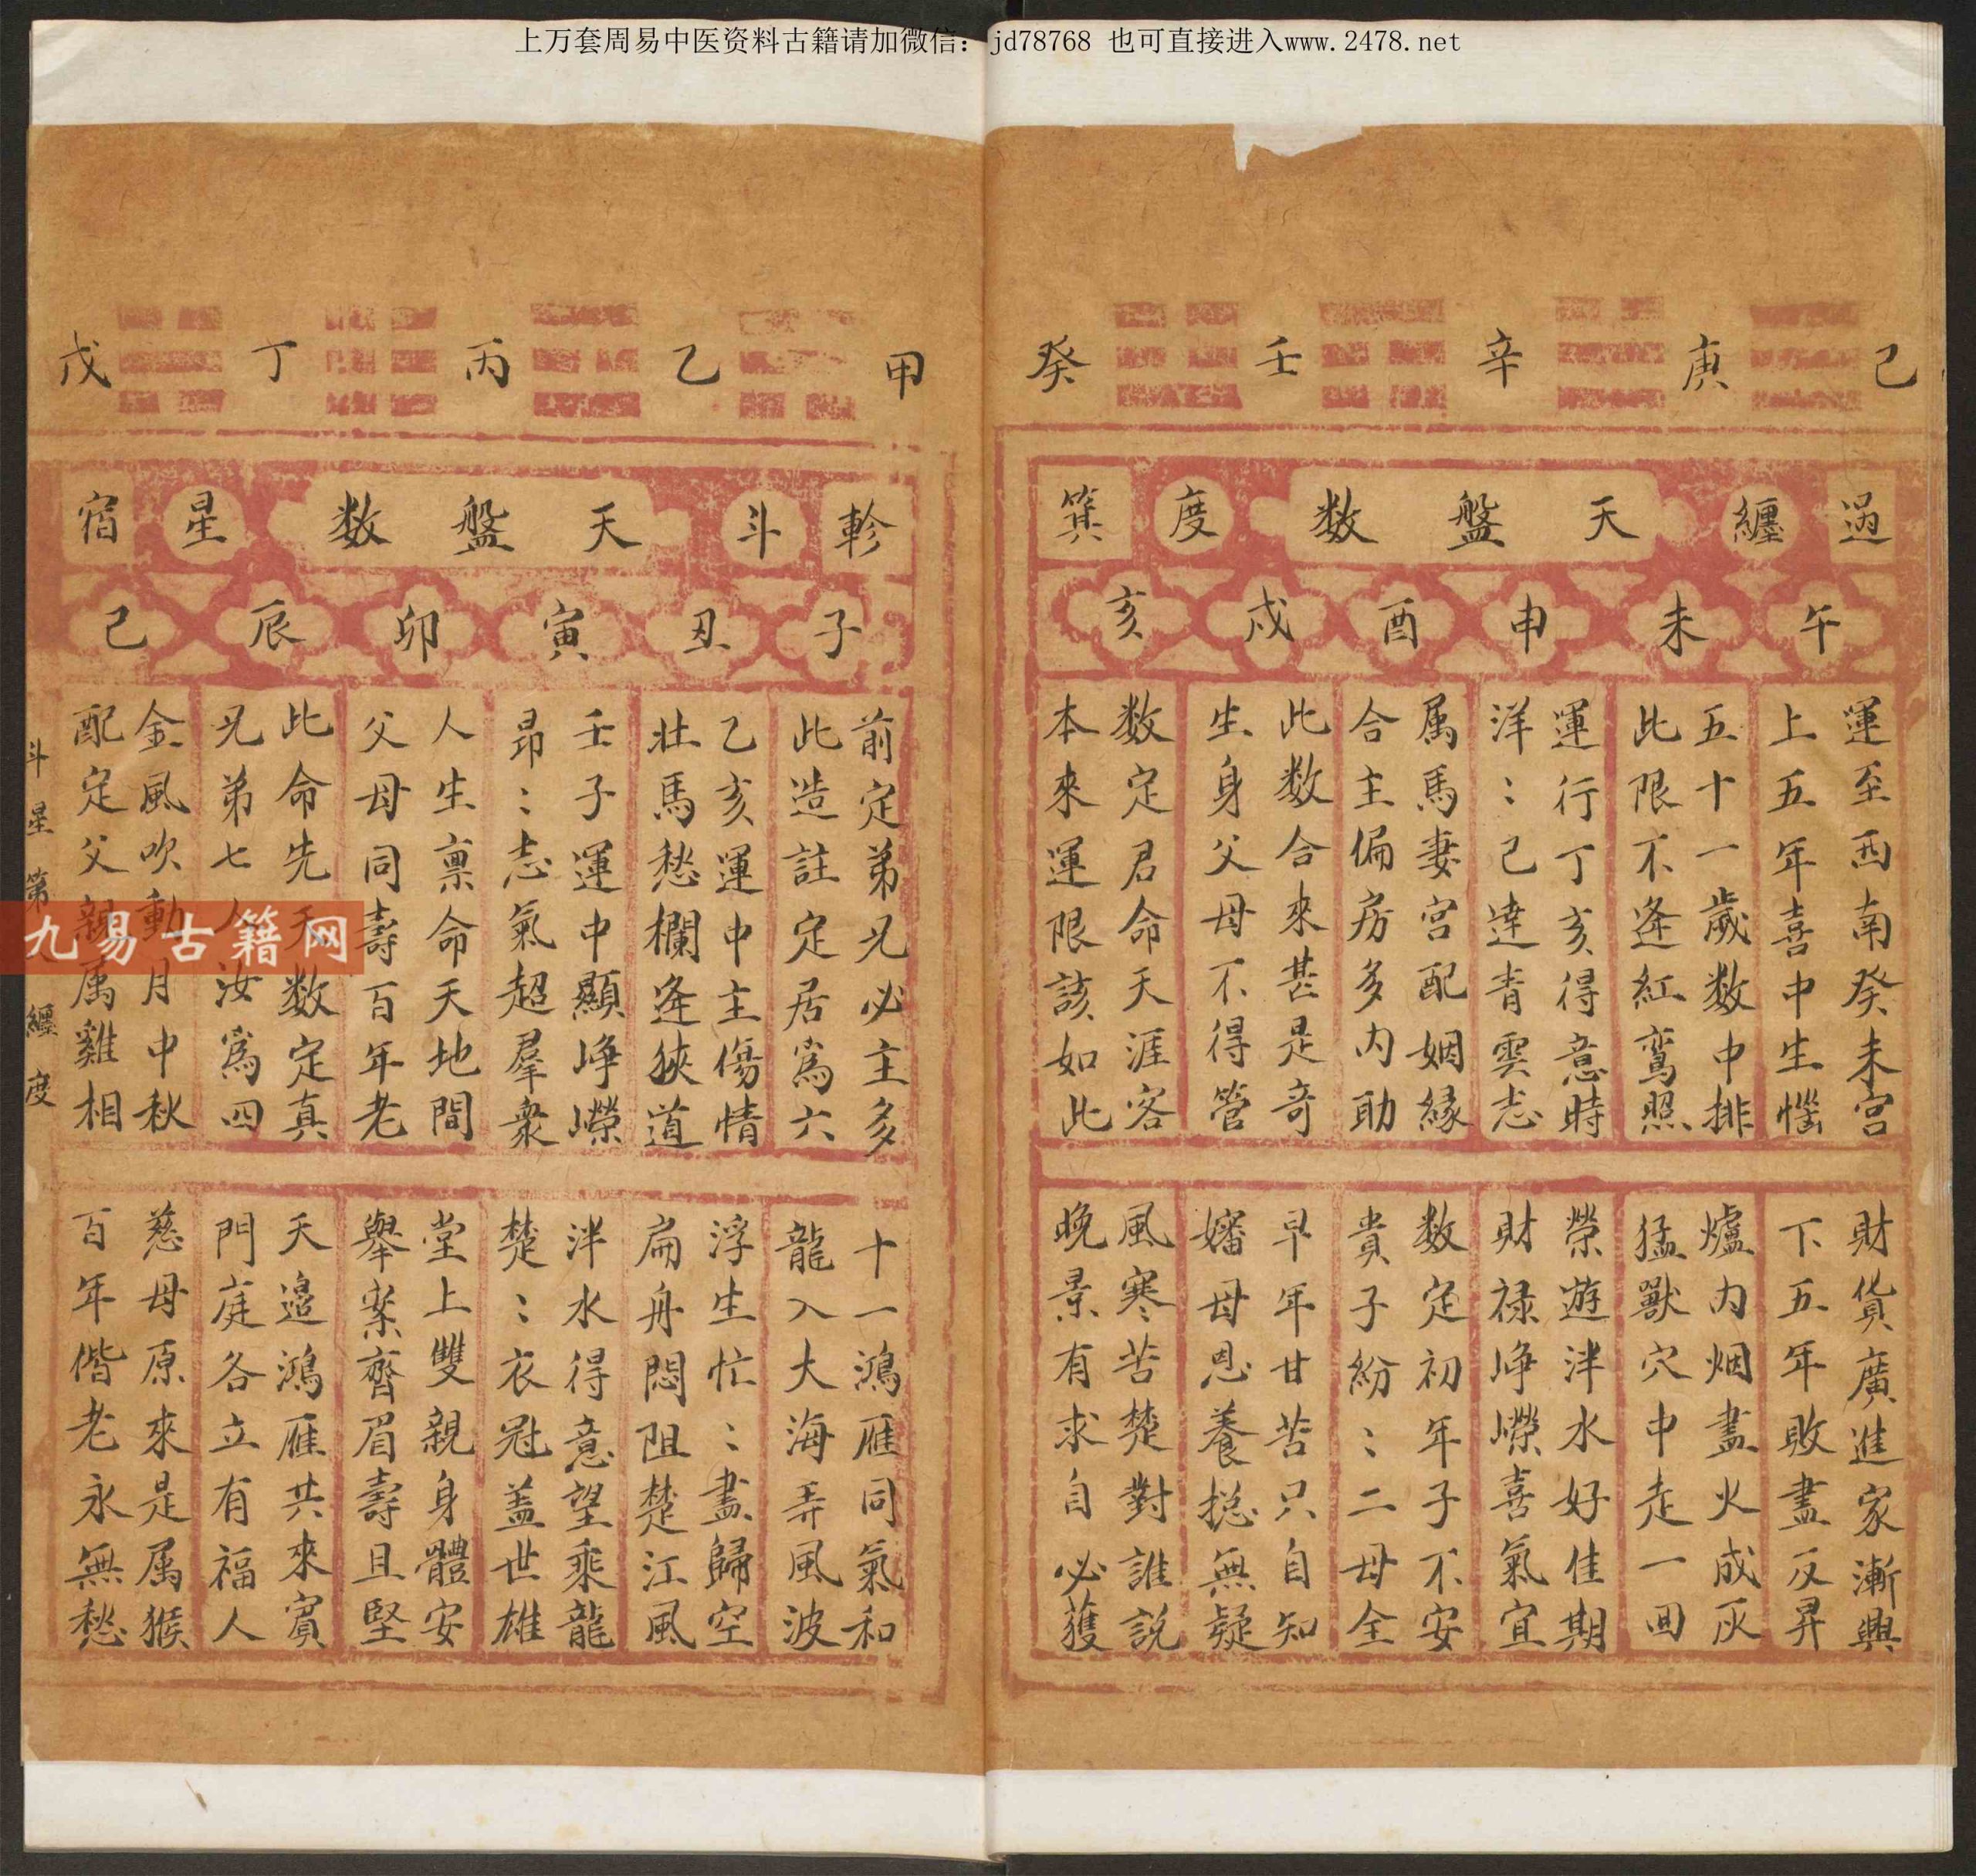 上万套周易中医资料古籍请加微信：jd78768 也可直接进入www.2478.net
己 庚 辛 壬 癸
過 纏 天盤数 度 箕
午 未 申 酉 戌 亥
運至西南癸未宮
上五年喜中生惱
五十一歲数中排
此限不逢紅鸞照
運行丁亥得意時
洋〻已達青雲志
属馬妻宮配姻緣
合主偏房多内助
此数合來甚是奇
生身父母不得管
数定君命天涯客
本來運限該如此
財貨廣進家漸興
下五年敗盡反昇
爐内烟盡火成灰
猛獸穴中走一回
榮遊泮水好佳期
財禄崢嶸喜氣宜
数定初年子不安
貴子紛〻二母全
早年甘苦只自知
嬸母恩養捴無疑
風寒苦楚對誰說
晚景有求自必獲
甲 乙 丙 丁 戊
軫 斗 天盤数 星 宿
子 丑 寅 卯 辰 巳
前定弟兄必主多
此造註定居為六
乙亥運中主傷情
壯馬愁欄逄狹道
壬子運中顯崢嶸
昂〻志氣超羣衆
人生禀命天地間
父母同壽百年老
此命先天数定真
兄弟七人汝為四
金風吹動月中秋
配定父親属雞相
十一鴻雁同氣和
龍入大海弄風波
浮生忙〻盡歸空
扁舟悶阻楚江風
泮水得意望乘龍
楚〻衣冠盖世雄
堂上雙親身體安
舉案齊眉壽且堅
天邉鴻雁共來賓
門庭各立有福人
慈母原來是属猴
百年偕老永無愁
斗星第 纏度
九易古籍网